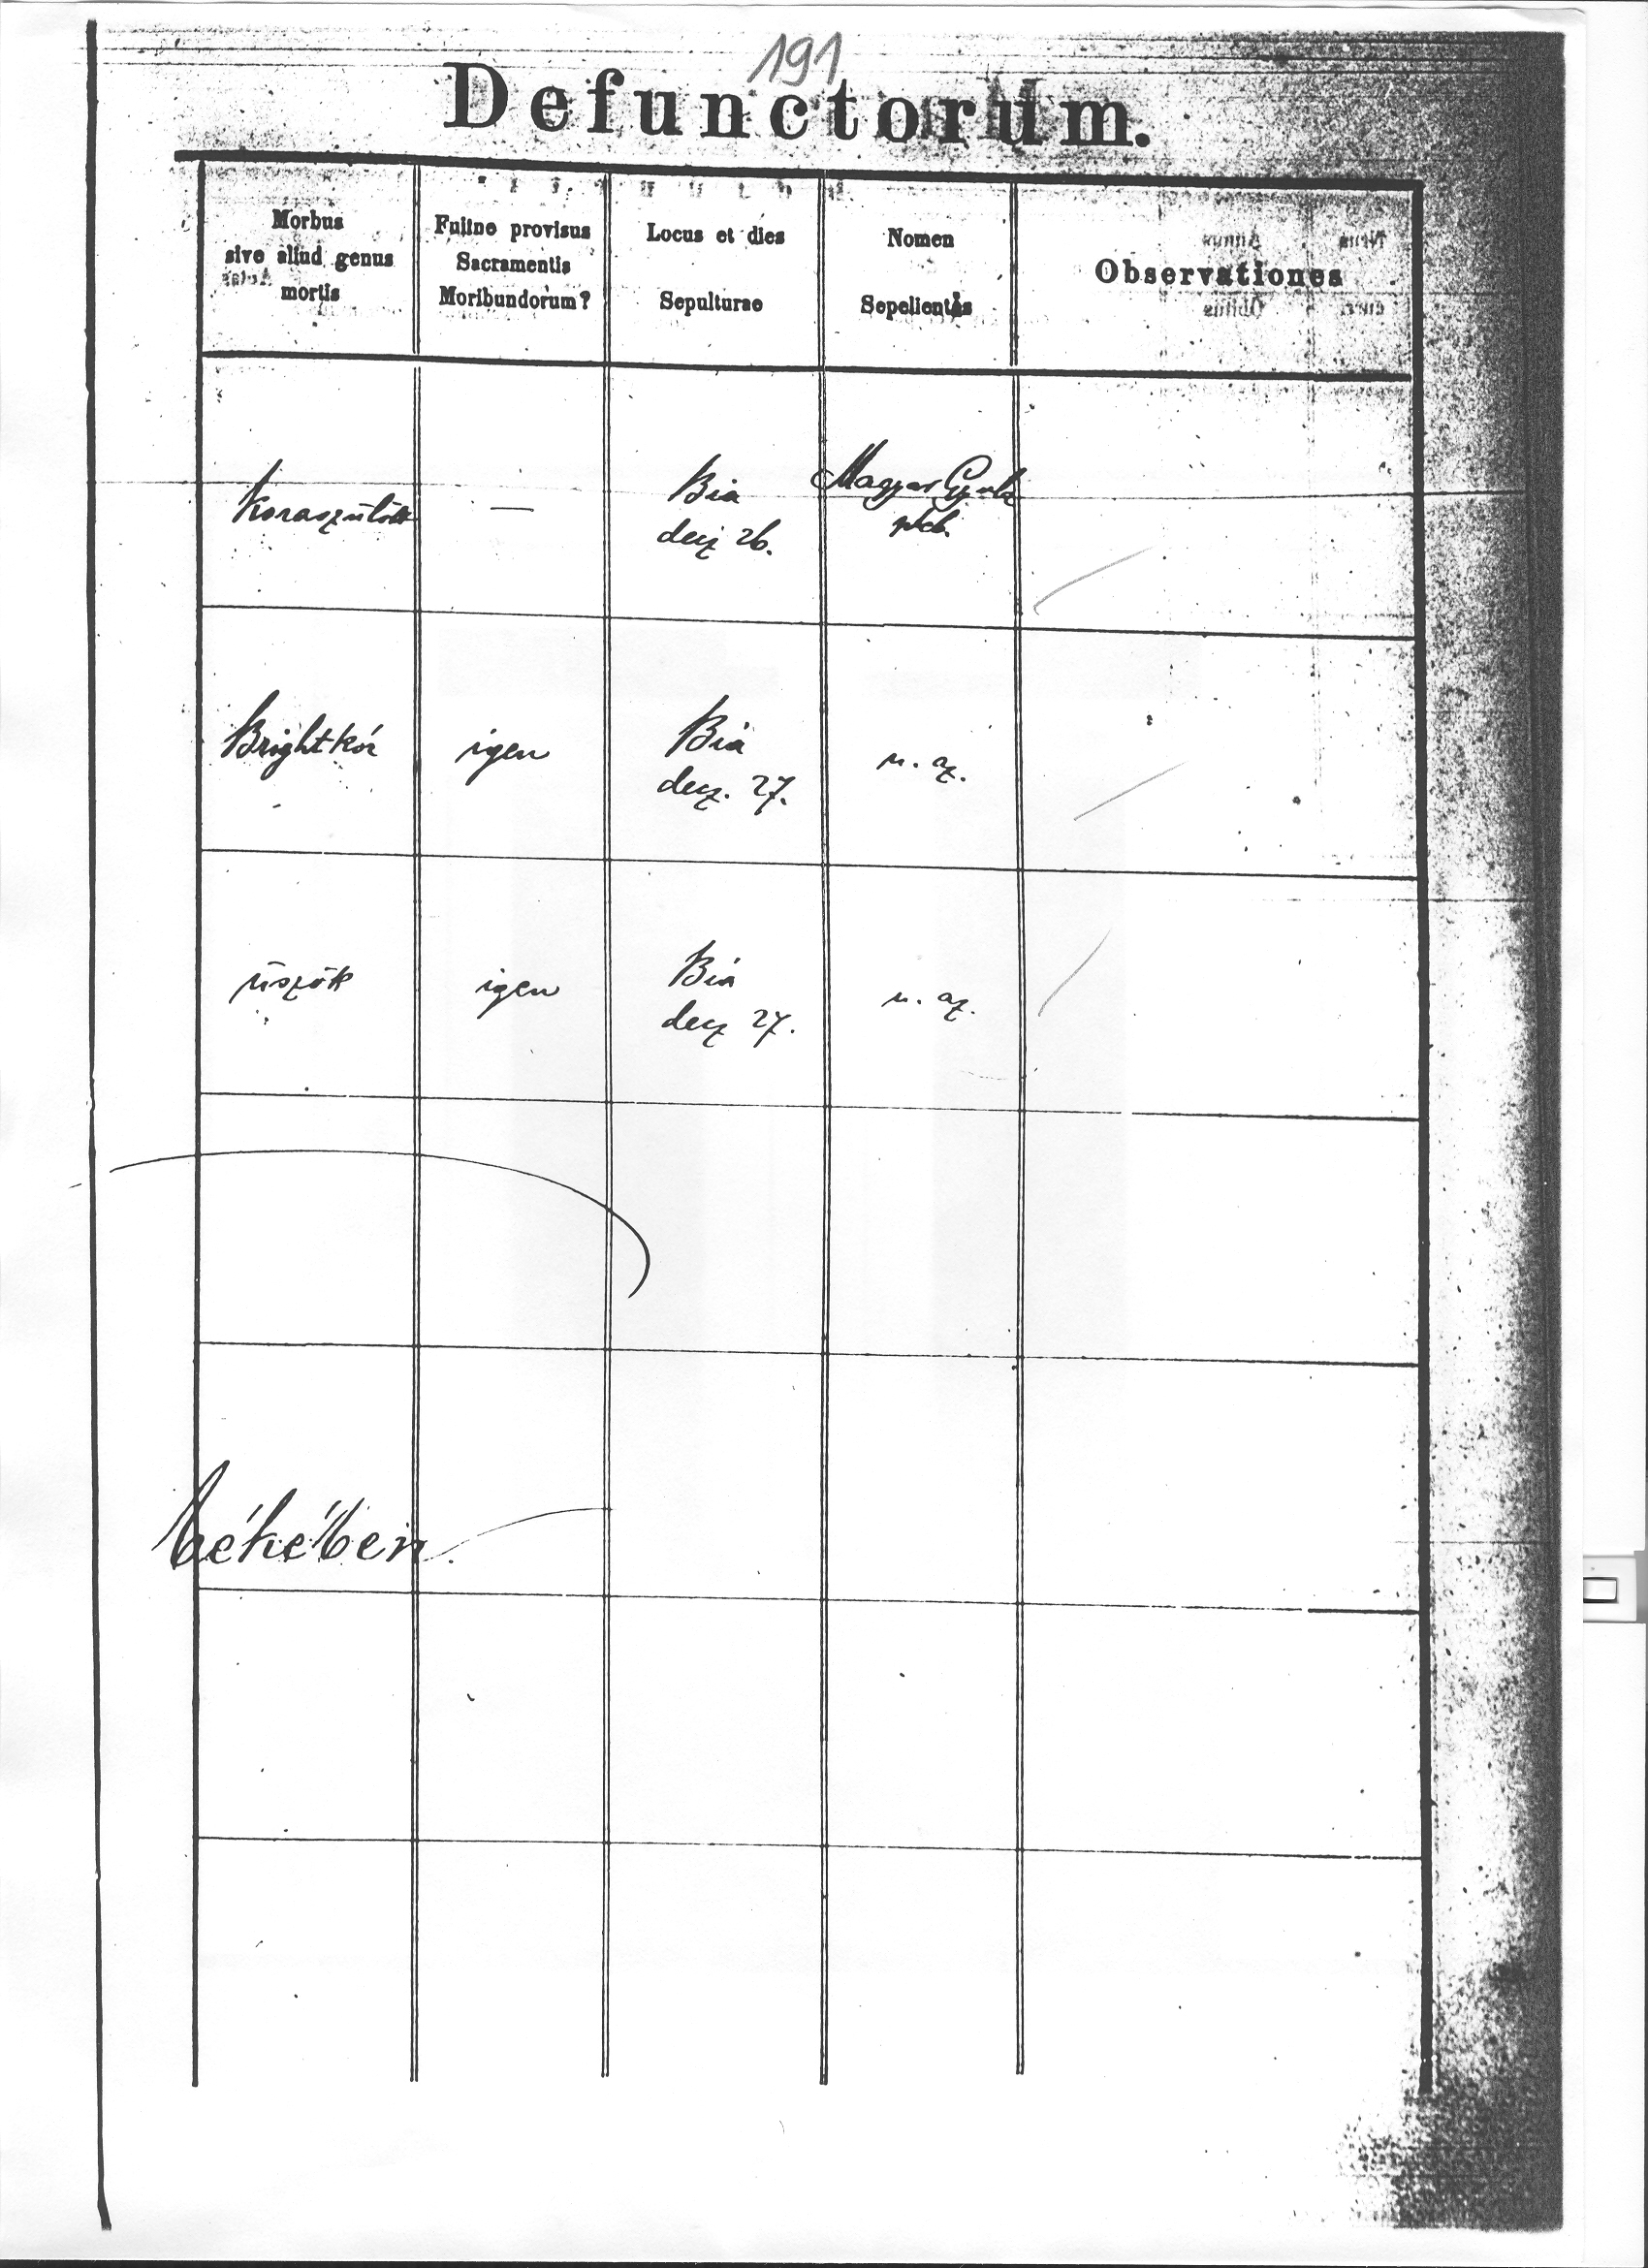 191
Defunctorum.
Morbus
sive aliud genus
mortis
Fuitne provisus
Sacramentis
Moribundorum?
Locus et dies
Sepulturae
Nomen
Sepelientis
Observationes
Koraszülött
—
Bia
decz 26.
Magyar Gyula
pleb.
Brightkór
igen
Bia
decz. 27.
u. az.
üszök
igen
Bia
decz 27.
u. az.
békében.